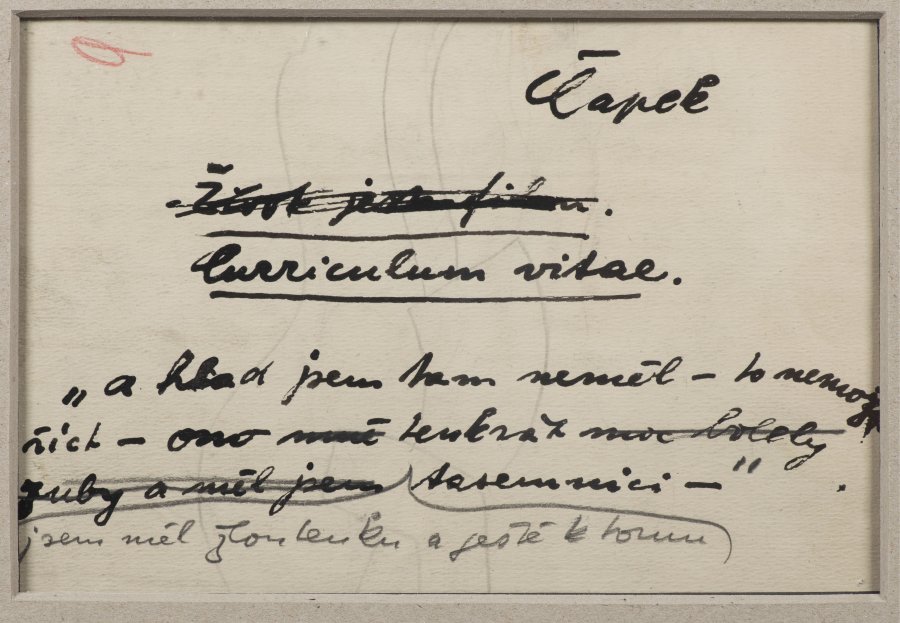 Čapek
Život jest film.
Curriculum vitae.
„a hlad jsem tam neměl – to nemohu
říct – ono mně tenkrát moc bolely
zuby a měl jsem tasemnici –"
jsem měl žloutenku a ještě k tomu